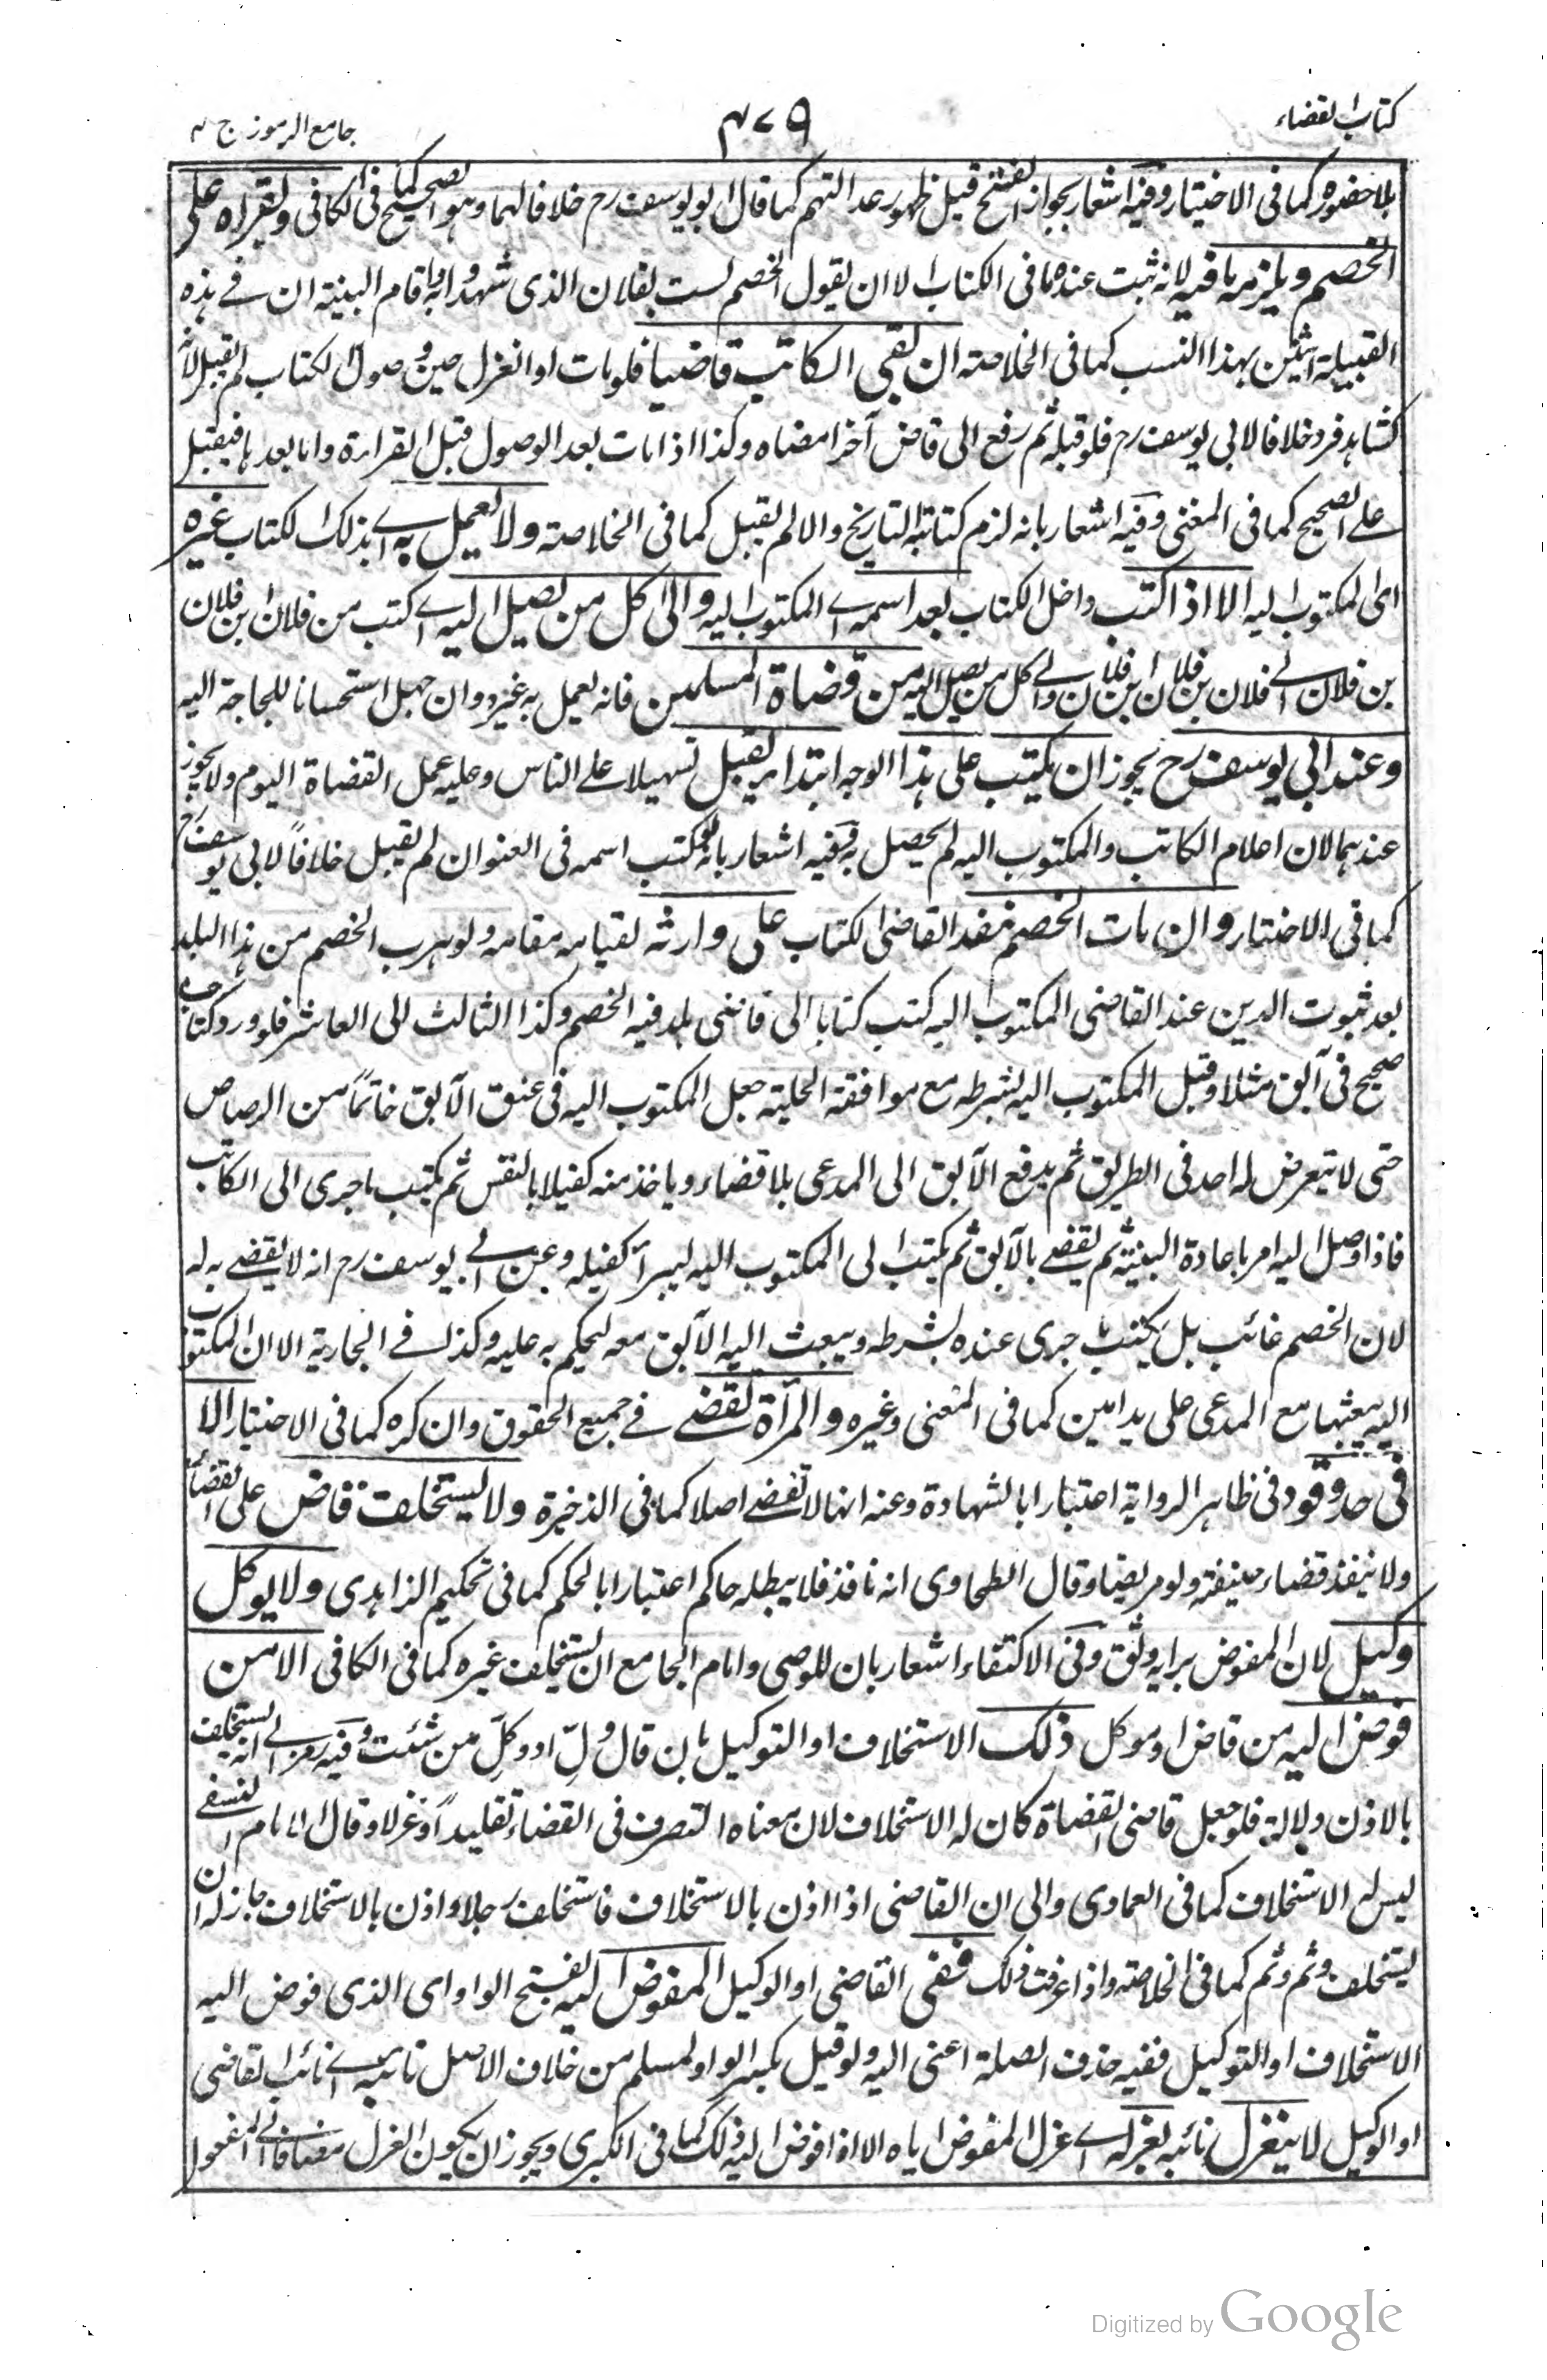 كتاب القضاء
٤٧٩
جامع الرموز ج ٢
بلا حضوره كما فى الاختيار وفيه اشعار بجواز الفتح قبل ظهور عدالتهم كما قال ابو يوسف رح خلافا لهما وهو الصحيح كما فى الكافى ويقراه على
الخصم ويلزمه ما فيه لانه ثبت عنده ما فى الكتاب الا ان يقول الخصم لست بفلان الذى شهدوا به واقام البينة ان فے هذه
القبيلة اثنين بهذا النسب كما فى الخلاصة ان بقى الكاتب قاضيا فلو مات او انعزل حين وصول الكتاب لم يقبل لانه
كشاهد فرد خلافا لابى يوسف رح فلو قبله ثم رفع الى قاض آخر امضاه وكذا اذا مات بعد الوصول قبل القراءة واما بعدها فيقبل
علے الصحيح كما فى المغنى وفيه اشعار بانه لزم كتابة التاريخ والا لم يقبل كما فى الخلاصة ولا يعمل به اے بذلك الكتاب غيره
اى المكتوب اليه الا اذا كتب داخل الكتاب بعد اسمه اے المكتوب اليه والى كل من يصل اليه اے كتب من فلان ابن فلان
بن فلان الے فلان بن فلان ابن فلان والے كل من يصل اليه من قضاة المسلمين فانه يعمل به غيره وان جهل استحسانا للحاجة اليه
وعند ابى يوسف رح يجوز ان يكتب على هذا الوجه ابتداء يقبل تسهيلا علے الناس وعليه عمل القضاة اليوم ولا يجوز
عندهما لان اعلام الكاتب والمكتوب اليه لم يحصل به وفيه اشعار بانه لو كتب اسمه فى العنوان لم يقبل خلافاً لابى يوسف رح
كما فى الاختيار وان مات الخصم نفذ القاضى الكتاب على وارثه لقيامه مقامه ولو هرب الخصم من هذا البلد
بعد ثبوت الدين عند القاضى المكتوب اليه كتب كتابا الى قاضى بلد فيه الخصم وكذا الثالث الى العاشر فلو ورد كتاب
صحيح فى آبق مثلا وقبل المكتوب اليه بشرطه مع موافقة الحلية جعل المكتوب اليه فى عنق الآبق خاتماً من الرصاص
حتى لا يتعرض له احد فى الطريق ثم يدفع الآبق الى المدعى بلا قضاء وياخذ منه كفيلا بالنفس ثم يكتب ما جرى الى الكاتب
فاذا وصل اليه امر باعادة البينة ثم يقضے بالآبق ثم يكتب الى المكتوب اليه ليبرأ كفيله وعن ابے يوسف رح انه لا يقضے به له
لان الخصم غائب بل يكتب ما جرى عنده بشرطه ويبعث اليه الآبق معه ليحكم به عليه وكذلك فے الجارية الا ان المكتوب
اليه يبعثها مع المدعى على يد امين كما فى المغنى وغيره والمرأة تقضے فے جميع الحقوق وان كره كما فى الاختيار الا
فى حد وقود فى ظاهر الرواية اعتبارا بالشهادة وعنه انها لا تقضے اصلا كما فى الذخيرة ولا يستخلف قاض على القضاء
ولا ينفذ قضاء خليفته ولو مريضا وقال الطحاوى انه نافذ فلا يبطله حاكم اعتبارا بالحكم كما فى تحكيم الزاهدى ولا يوكل
وكيل لان المفوض برايه وثق وفى الاكتفاء اشعار بان للوصى وامام الجامع ان يستخلف غيره كما فى الكافى الا من
فوض اليه من قاض او موكل ذلك الاستخلاف او التوكيل بان قال ولّ او وكلّ من شئت وفيه رمز الے انه يستخلف
بالاذن دلالة فلو جعل قاضى القضاة كان له الاستخلاف لان معناه التصرف فى القضاء تقليداً وعزلا وقال الامام النسفے
ليس له الاستخلاف كما فى العمادى والى ان القاضى اذا اذن بالاستخلاف فاستخلف رجلا واذن بالاستخلاف جاز له ان
يستخلف وثم وثم كما فى الخلاصة واذا عرفت ذلك ففى القاضى او الوكيل المفوض اليه بفتح الواو اى الذى فوض اليه
الاستخلاف او التوكيل ففيه حذف الصلة اعنى اليه ولو قيل بكسر الواو لمسلم من خلاف الاصل نائبه اے نائب القاضى
او الوكيل لا ينعزل نائبه بعزله اے عزل المفوض اياه الا اذا فوض اليه ذلك كما فى الكبرى ويجوز ان يكون العزل مضافا الى المفعول
Digitized by Google